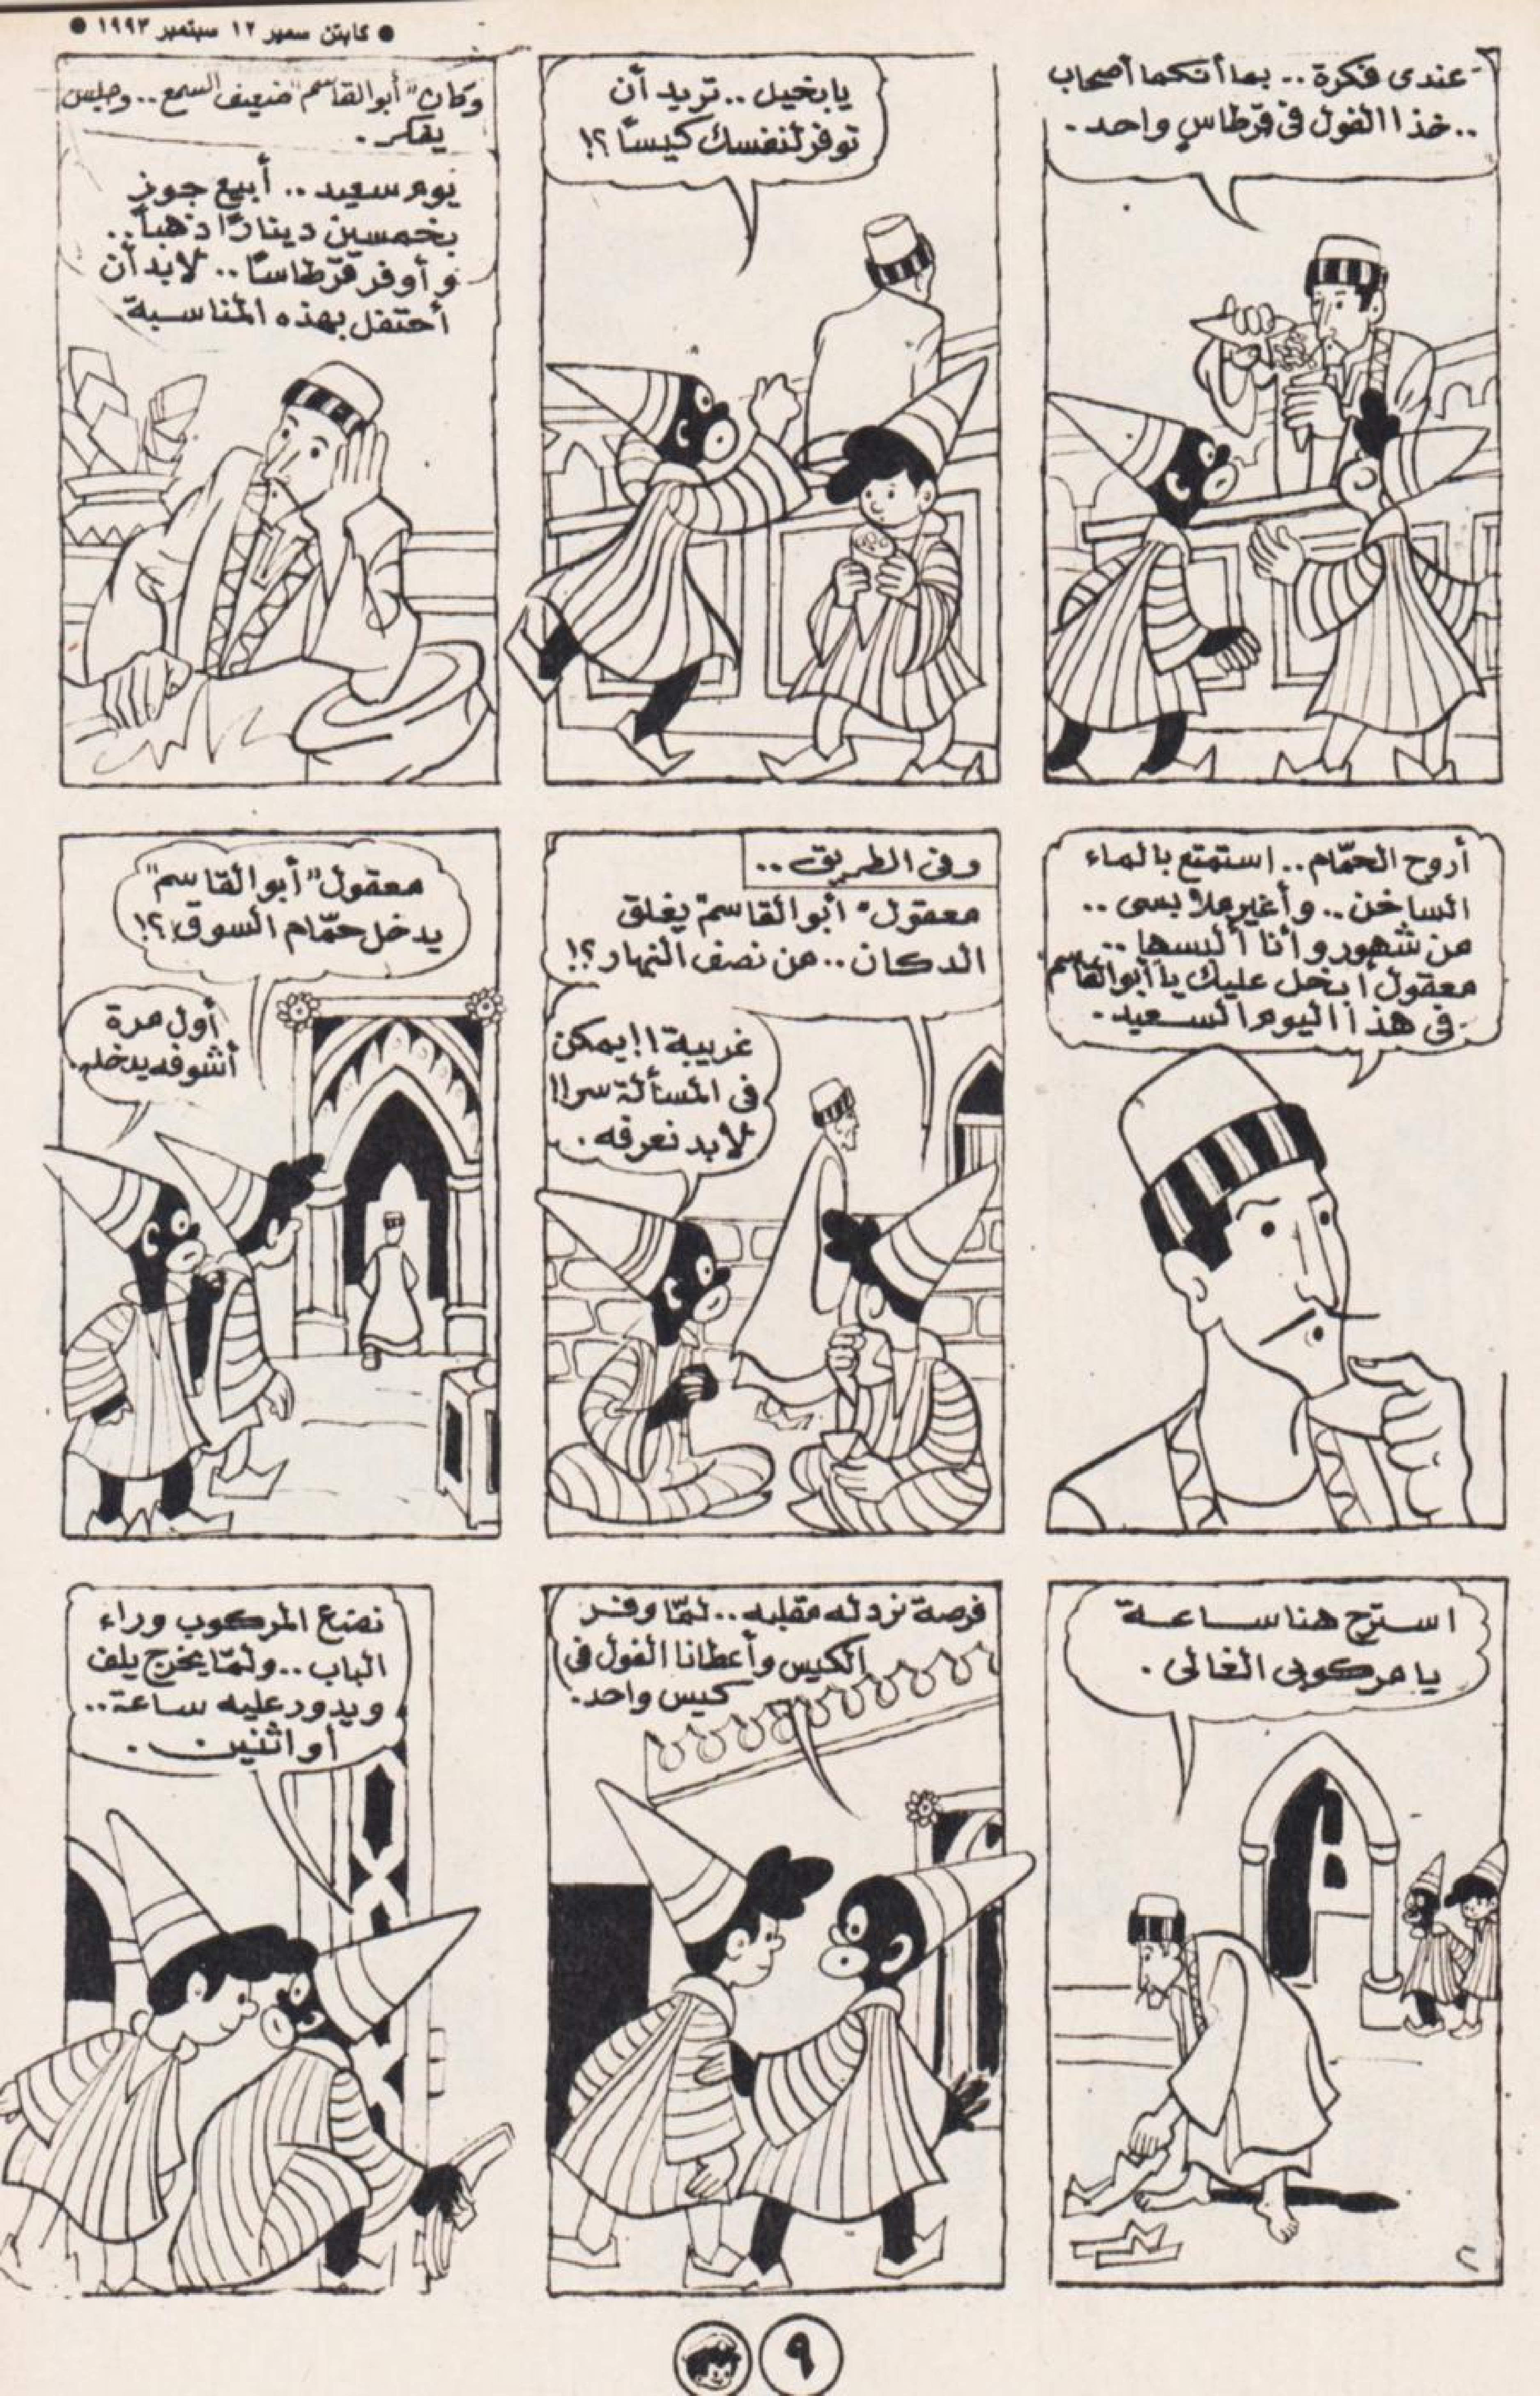 ● كابتن سمير ١٢ سبتمبر ١٩٩٣ ●
عندى فكرة .. بما أنكما أصحاب
.. خذا الفول فى قرطاسٍ واحد .
يا بخيل .. تريد أن
توفر لنفسك كيسًا ؟!
وكان "أبو القاسم" ضعيف السمع .. وجلس
يفكر .
يوم سعيد .. أبيع جوز
بخمسين دينارًا ذهبًا ..
وأوفر قرطاسًا .. لابد أن
أحتفل بهذه المناسبة .
أروح الحمّام .. استمتع بالماء
الساخن .. وأغير ملابسى ..
من شهور وأنا ألبسها ..
معقول أبخل عليك يا أبو القاسم
فى هذا اليوم السعيد .
وفى الطريق ..
معقول "أبو القاسم" يغلق
الدكان .. من نصف النهار ؟!
غريبة !! يمكن
فى المسألة سر !!
لابد نعرفه .
معقول "أبو القاسم"
يدخل حمّام السوق ؟!
أول مرة
أشوفه يدخله .
استرح هنا ساعة
يا مركوبى الغالى .
فرصة نرد له مقلبه .. لمّا وفر
الكيس وأعطانا الفول فى
كيس واحد .
نضع المركوب وراء
الباب .. ولمّا يخرج يلف
ويدور عليه ساعة ..
أو اثنين .
٢
٩